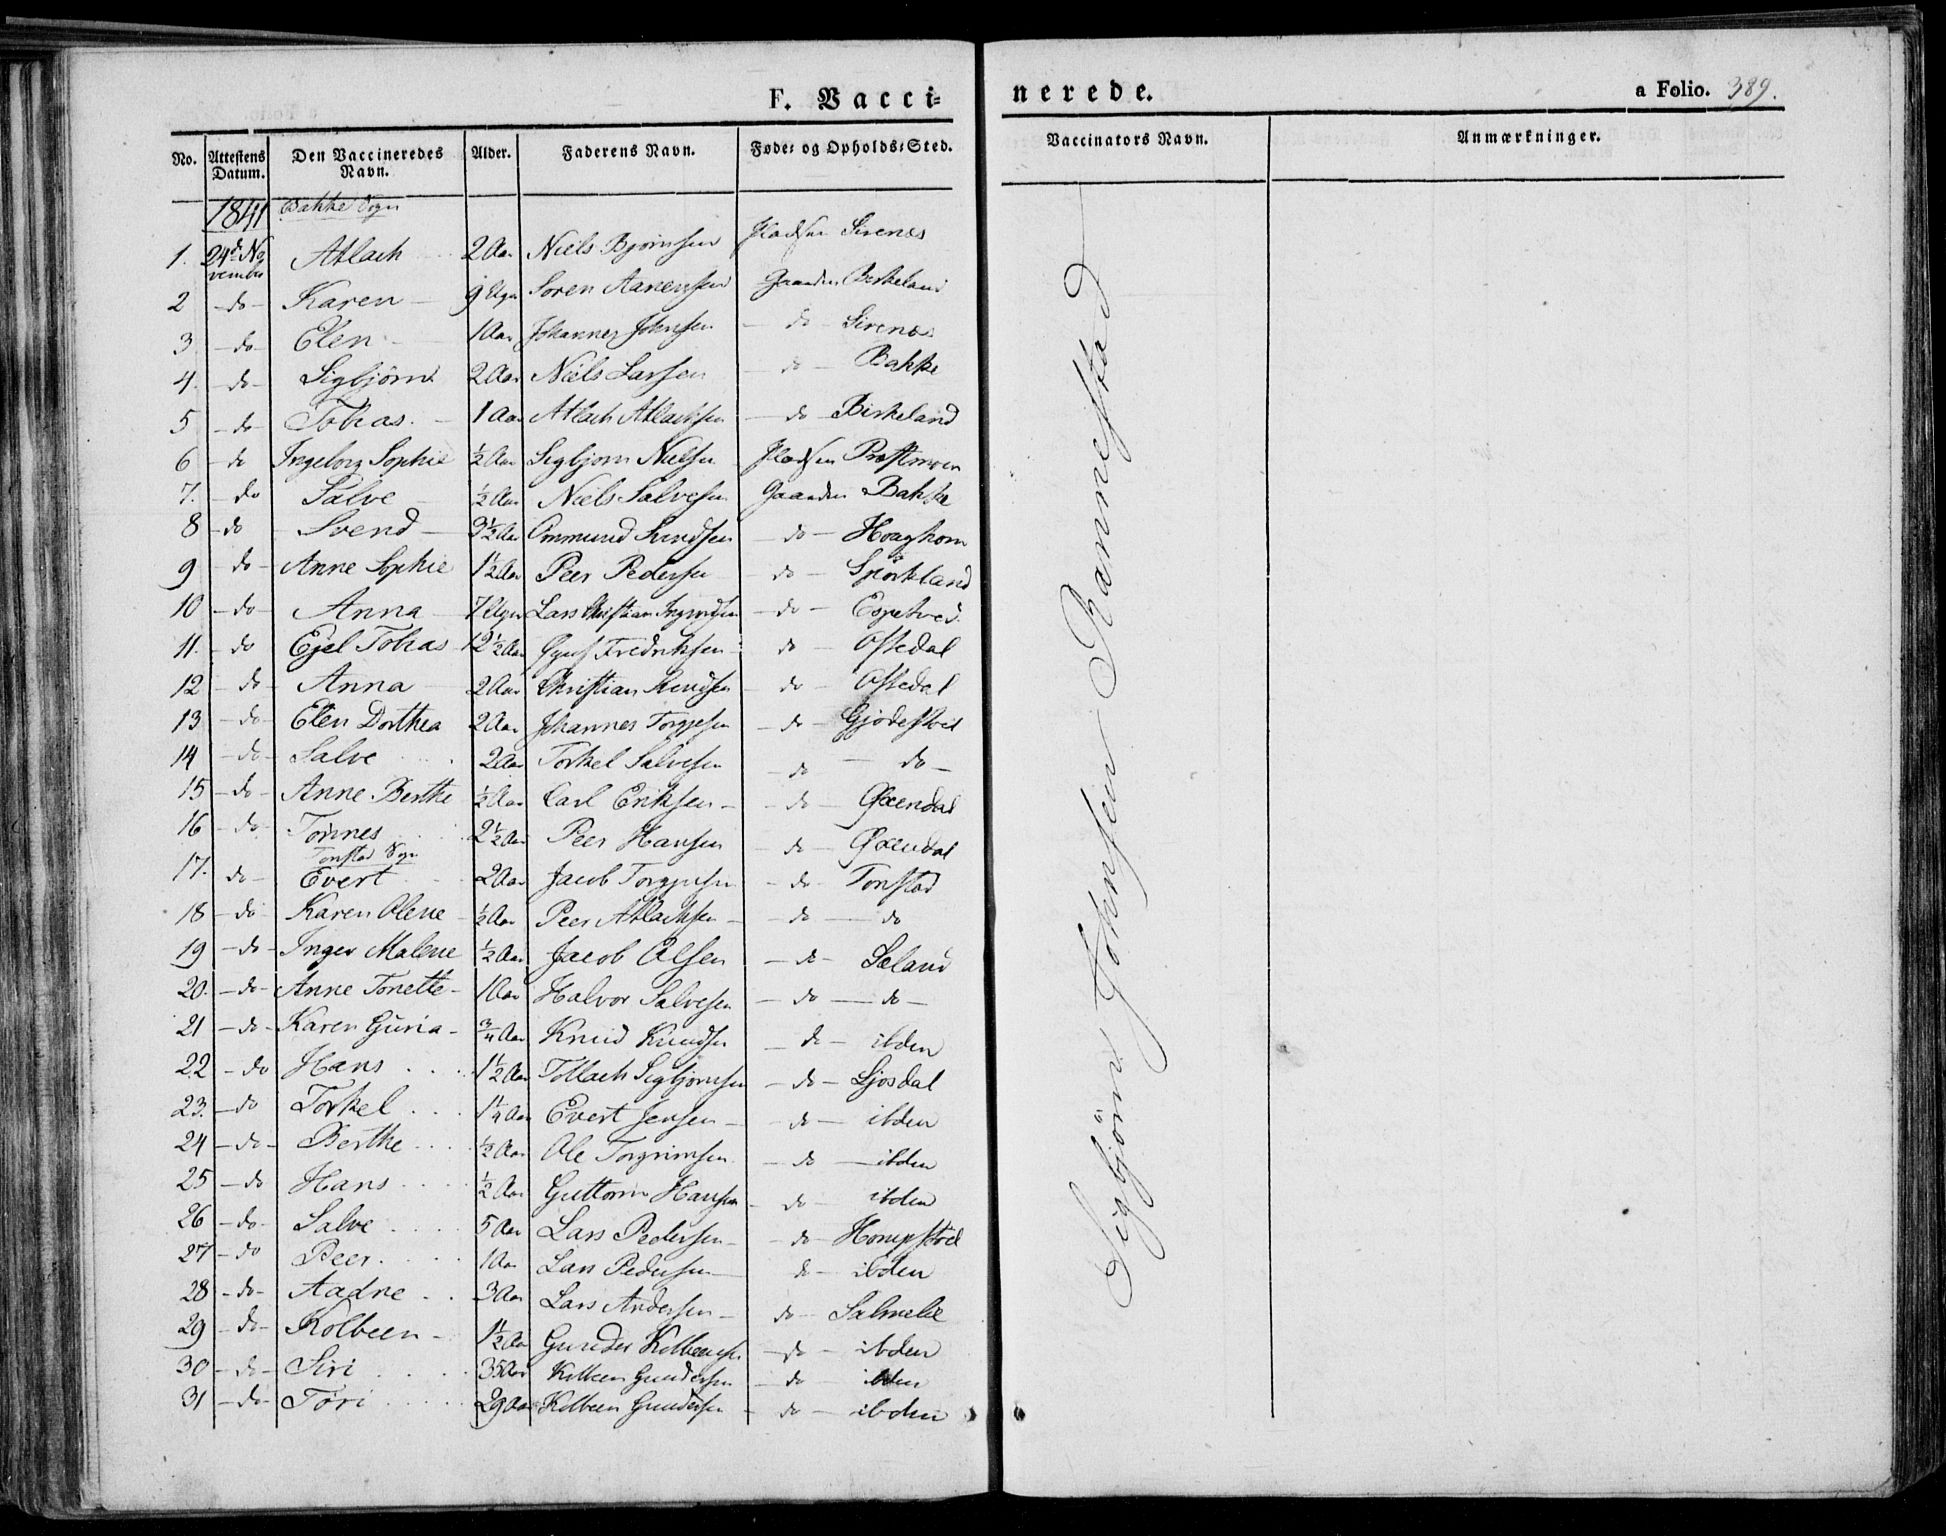 F. Vacci=
nerede.
a Folio. 389.
No. Attestens Datum. Den Vaccineredes Navn. Alder. Faderens Navn. Føde= og Opholds=Sted. Vaccinators Navn. Anmærkninger.
1841 Bakke Sogn
1. 24de November Atlach 2 Aar Niels Bjørnsen Pladsen Sirenes
2 - do - Karen - 9 Uger Søren Aanensen Gaarden Birkeland
3 - do - Elen - 1 Aar Johannes Johnsen - do - Sirenes
4. - do - Sigbjørn 2 Aar Niels Larsen - do - Bakke
5 - do - Tobias. - 1 Aar Atlach Atlachsen - do - Birkeland
6 - do Ingeborg Sophie ½ Aar Sigbjørn Nielsen Pladsen Præstmoen
7. - do Salve ½ Aar Niels Salvesen Gaarden Bakke
8 - do - Svend - 3½ Aar Ommund Knudsen - do - Hoaghom
9 do - Anne Sophie 1½ Aar Peer Pedersen - do - Spørkland
10 - do - Anna 7 Uger Lars Christian - do - Espetved
11. - do Ejel Tobias 12½ Aar Fredriksen - do - Oftedal
12 - do - Anna 2 Aar Christian Knudsen - do - Oftedal
13 - do - Elen Dorthea 2 Aar Johannes Torgjesen - do - Gjødestvet
14 - do - Salve 2 Aar Torkel Salvesen - do - do -
15 - do - Anne Berthe ½ Aar Carl Eriksen - - do - Øxendal
16 - do - Tønnes 2½ Aar Peer Hansen - do - Øxendal
Tonstad Sogn
17. do - Evert 2 Aar Jacob Torgjusen - do - Tonstad
18 - do - Karen Olene ½ Aar Peer Atlachsen - - do - do
19 - do - Inger Malene ½ Aar Jacob Olsen - do - Sæland
20. - do - Anne Tonette - 1 Aar Halvor Salvesen - do - do -
21 - do - Karen Guria - ¾ Aar Knud Knudsen - do - ibden
22 - do Hans 1½ Aar Tollach Sigbjørnsen - do - Ljosdal
23. - do Torkel 1¼ Aar Evert Jensen - - do - ibden
24 - do - Berthe ½ Aar Ole Torgrimsen - do - ibden
25 - do Hans ½ Aar Guttorm Hansen - do - ibden
26 - do - Salve 5 Aar Lars Pedersen - - do - Hompstvet
27 - do Peer. 1 Aar Lars Pedersen - do - ibden
28 - do - Aadne 3 Aar Lars Andersen - - do - Salmelie
29 - do - Kolbeen - 1½ Aar Gunder Kolbeensen - do - ibden
30 - do - Siri 35 Aar Kolbeen Gundersen - do - ibden
31 - do - Tori 29 Aar Kolbeen Gundersen - do - ibden
Sigbjørn Johnsen Rannestad